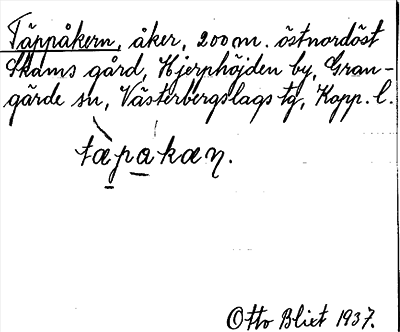 Täppåkern, åker, 200 m. östnordöst
Skams gård, Hjerphöjden by, Gran-
gärde sn, Västerbergslags tg, Kopp. l.
tæ̀pakæɳ.
Otto Blixt 1937.